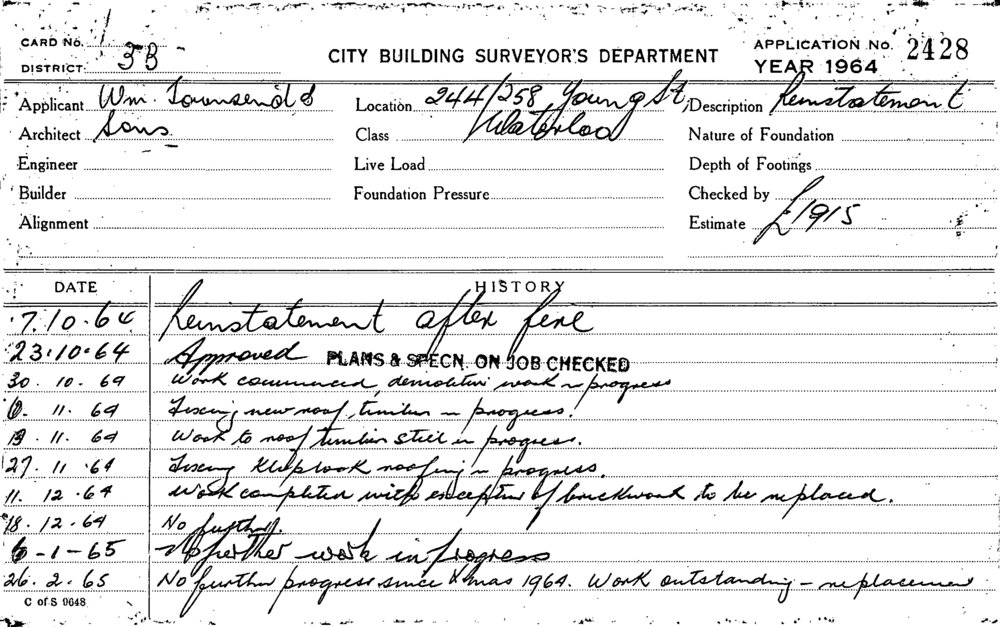 CARD No. 1
DISTRICT 3B
CITY BUILDING SURVEYOR'S DEPARTMENT
APPLICATION No. 2428
YEAR 1964
Applicant Wm. Townsend &
Architect Sons
Engineer
Builder
Alignment
Location 244/258 Young St,
Class Waterloo
Live Load
Foundation Pressure
Description Reinstatement
Nature of Foundation
Depth of Footings
Checked by
Estimate £1915
DATE HISTORY
7.10.64 Reinstatement after fire
23.10.64 Approved PLANS & SPECN. ON JOB CHECKED
30. 10. 64 Work commenced, demolition work in progress
6. 11. 64 Fixing new roof timber in progress.
13. 11. 64 Work to roof timber still in progress.
27. 11. 64 Fixing Kliplock roofing in progress.
11. 12. 64 Work completed with exception of brickwork to be replaced.
18. 12. 64 No further.
6-1-65 No further work in progress
26. 2. 65 No further progress since Xmas 1964. Work outstanding - replacement
C of S 9648